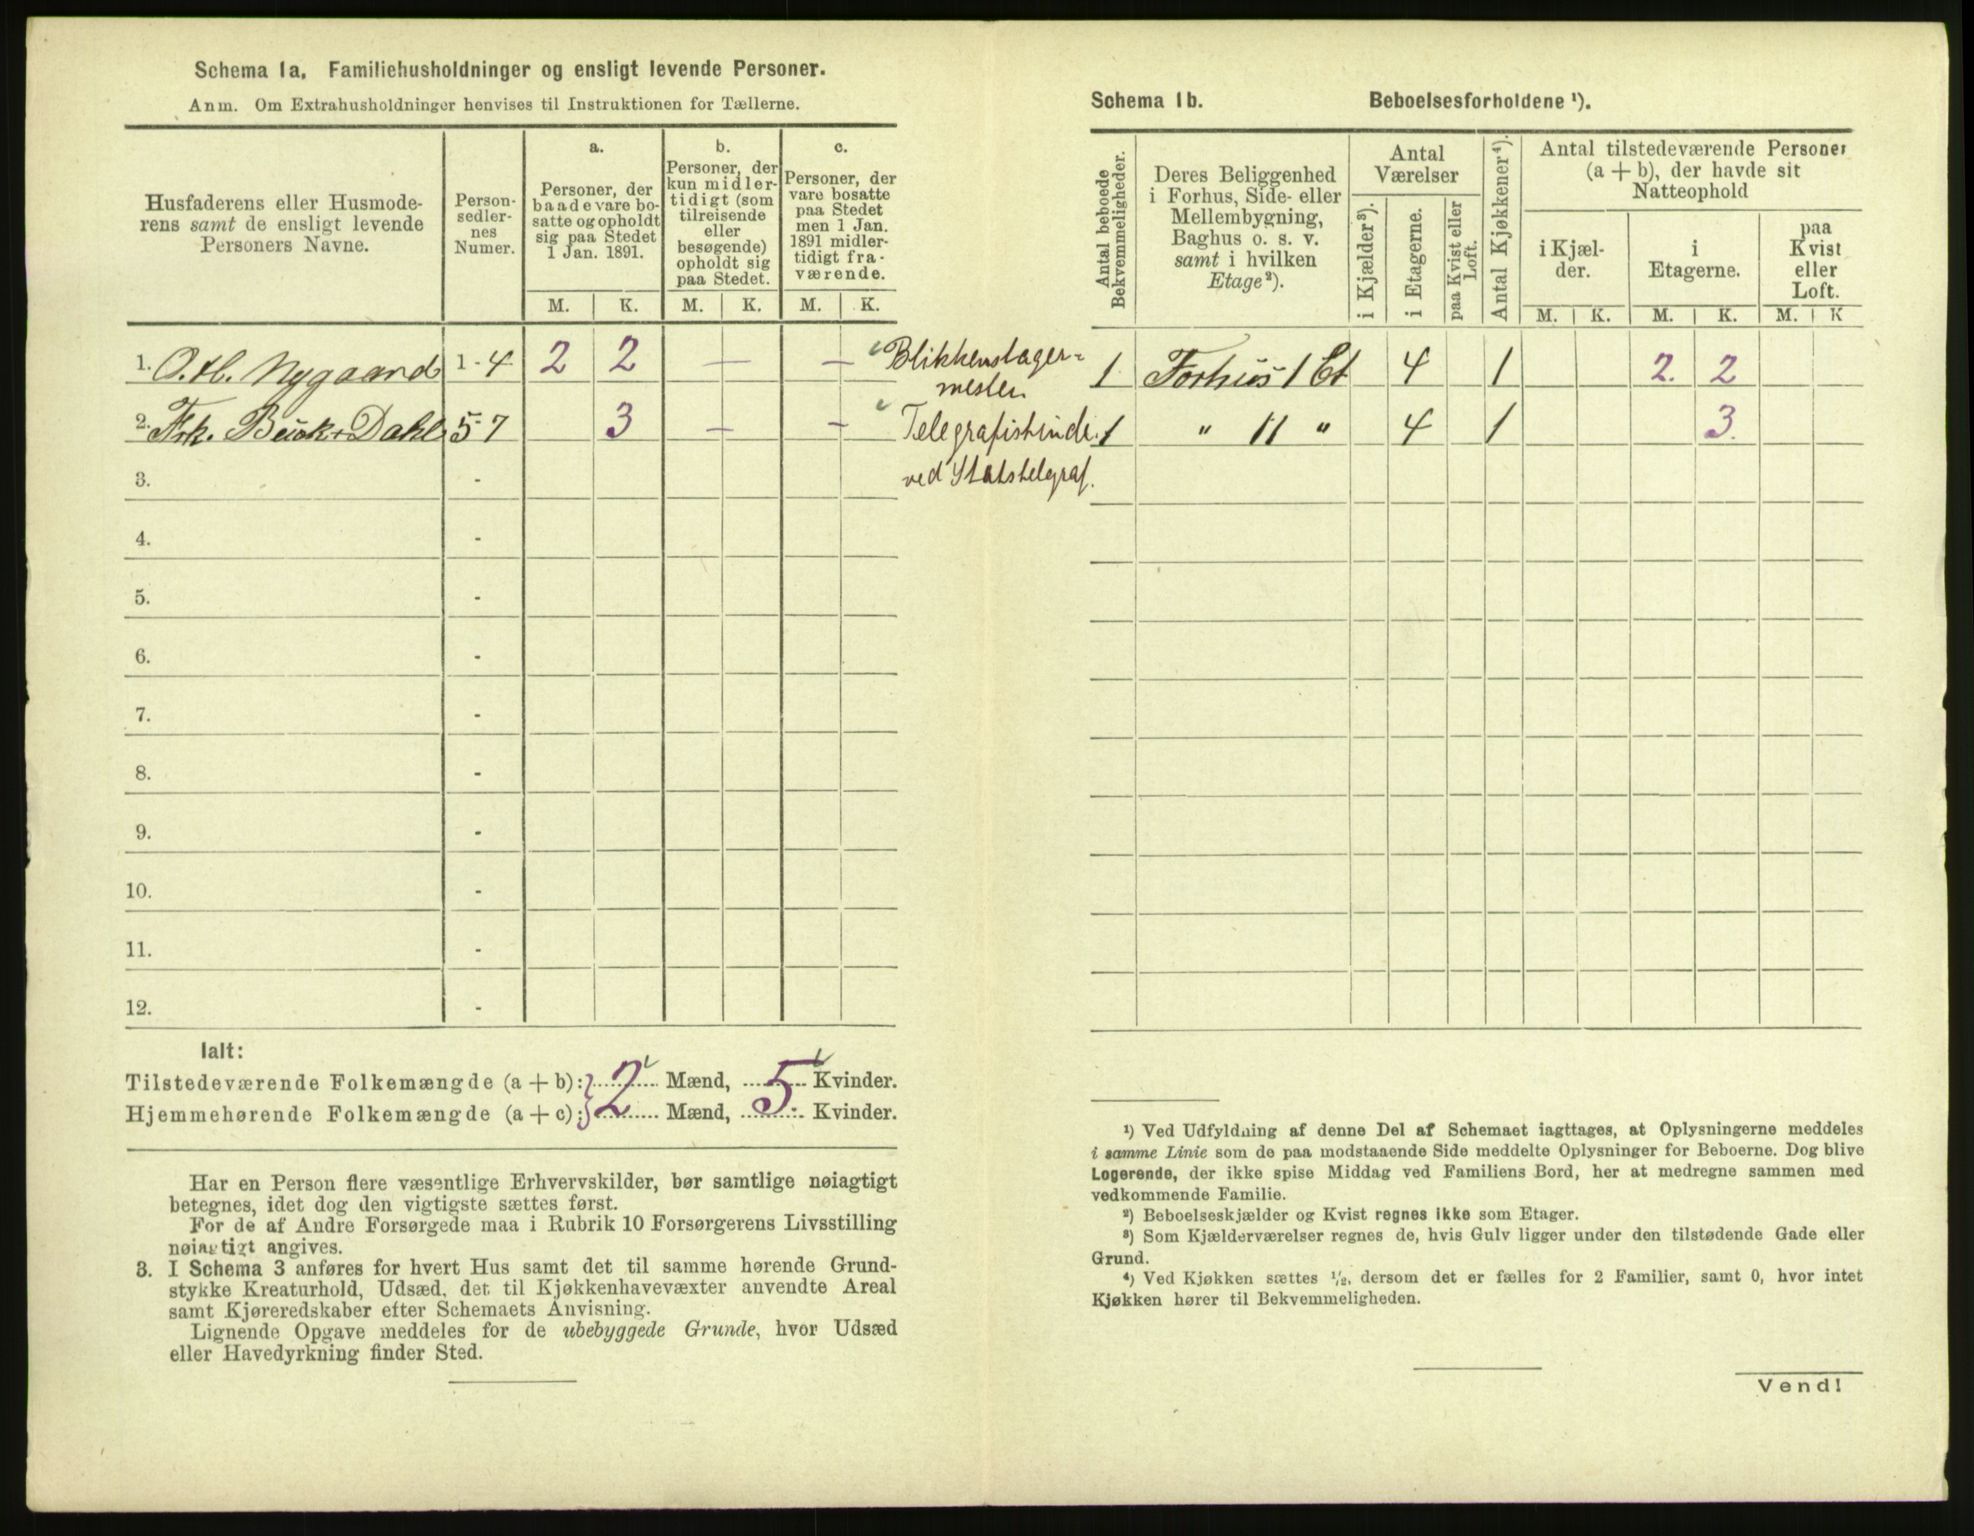 Schema 1a. Familiehusholdninger og ensligt levende Personer.
Anm. Om Extrahusholdninger henvises til Instruktionen for Tællerne.
Husfaderens eller Husmode-
rens samt de ensligt levende
Personers Navne.
Person-
sedler-
nes
Numer.
a.
Personer, der
baade vare bo-
satte og opholdt
sig paa Stedet
1 Jan. 1891.
b.
Personer, der
kun midler-
tidigt (som
tilreisende
eller
besøgende)
opholdt sig
paa Stedet.
c.
Personer, der
vare bosatte
paa Stedet
men 1 Jan.
1891 midler-
tidigt fra-
værende.
M. K. M. K. M. K.
1. O. H. Nygaard 1-4 2 2 — — Blikkenslager-
mester
2. Frk. Buck + Dahl 5-7 3 — — Telegrafistinde
ved Statstelegraf.
3. -
4. -
5. -
6. -
7. -
8. -
9. -
10. -
11. -
12. -
Ialt:
Tilstedeværende Folkemængde (a + b): 2 Mænd, 5 Kvinder.
Hjemmehørende Folkemængde (a + c): Mænd, Kvinder.
Har en Person flere væsentlige Erhvervskilder, bør samtlige nøiagtigt
betegnes, idet dog den vigtigste sættes først.
For de af Andre Forsørgede maa i Rubrik 10 Forsørgerens Livsstilling
nøiagtigt angives.
3. I Schema 3 anføres for hvert Hus samt det til samme hørende Grund-
stykke Kreaturhold, Udsæd, det til Kjøkkenhavevæxter anvendte Areal
samt Kjøreredskaber efter Schemaets Anvisning.
Lignende Opgave meddeles for de ubebyggede Grunde, hvor Udsæd
eller Havedyrkning finder Sted.
Schema 1b. Beboelsesforholdene ¹).
Antal beboede
Bekvemmeligheder.
Deres Beliggenhed
i Forhus, Side- eller
Mellembygning,
Baghus o. s. v.
samt i hvilken
Etage²).
Antal
Værelser
i Kjælder³).
i Etagerne.
paa Kvist eller
Loft.
Antal Kjøkkener⁴).
Antal tilstedeværende Personer
(a + b), der havde sit
Natteophold
i Kjæl-
der.
i
Etagerne.
paa
Kvist
eller
Loft.
M. K. M. K. M. K
1 Forhus 1 Et 4 1 2. 2
1 " 11 " 4 1 3.
¹) Ved Udfyldning af denne Del af Schemaet iagttages, at Oplysningerne meddeles
i samme Linie som de paa modstaaende Side meddelte Oplysninger for Beboerne. Dog blive
Logerende, der ikke spise Middag ved Familiens Bord, her at medregne sammen med
vedkommende Familie.
²) Beboelseskjælder og Kvist regnes ikke som Etager.
³) Som Kjælderværelser regnes de, hvis Gulv ligger under den tilstødende Gade eller
Grund.
⁴) Ved Kjøkken sættes ½, dersom det er fælles for 2 Familier, samt 0, hvor intet
Kjøkken hører til Bekvemmeligheden.
Vend!